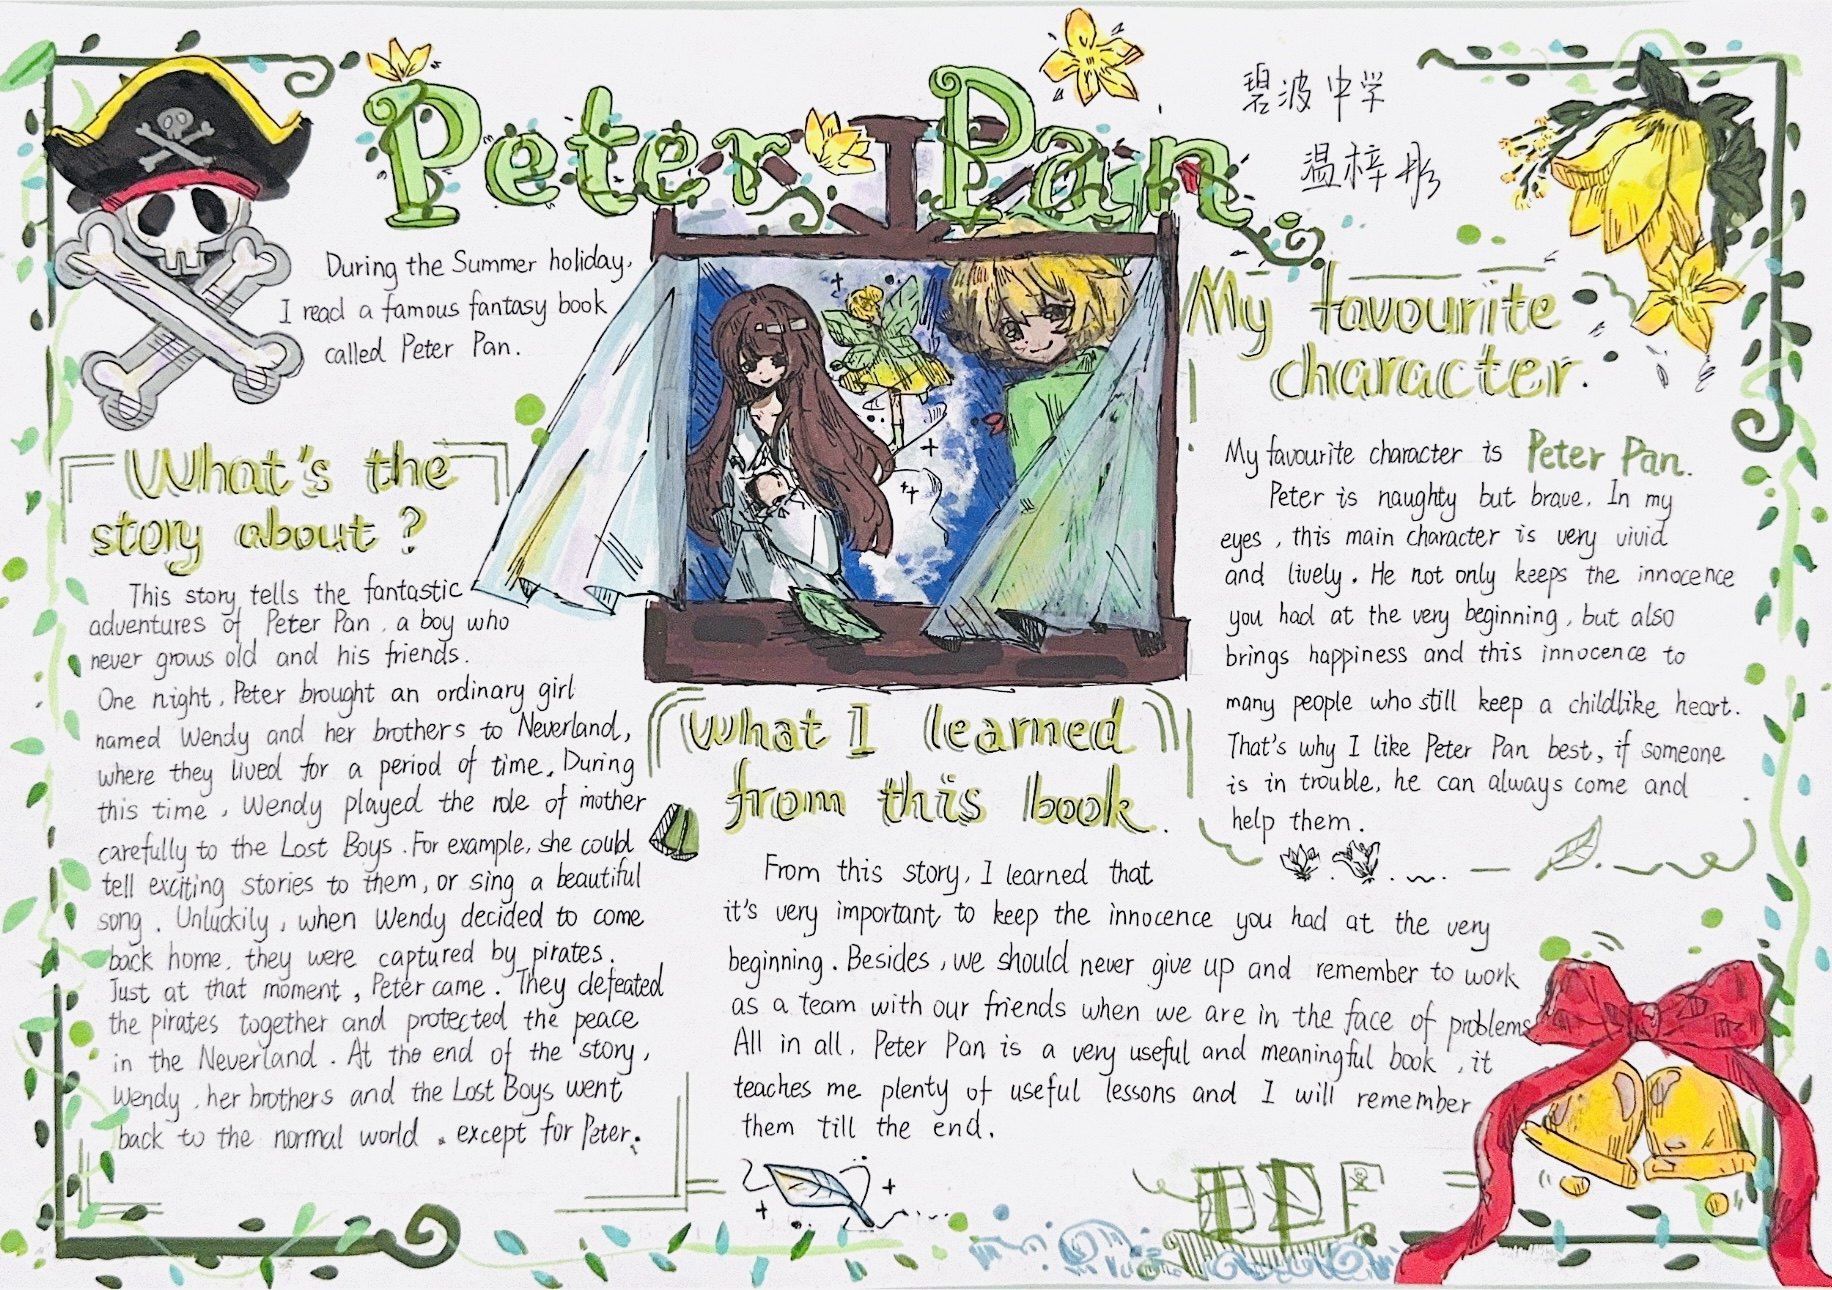 Peter Pan
碧波中学
温梓彤
During the Summer holiday,
I read a famous fantasy book
called Peter Pan.
What's the
story about?
This story tells the fantastic
adventures of Peter Pan, a boy who
never grows old and his friends.
One night, Peter brought an ordinary girl
named Wendy and her brothers to Neverland,
where they lived for a period of time. During
this time, Wendy played the role of mother
carefully to the Lost Boys. For example, she could
tell exciting stories to them, or sing a beautiful
song. Unluckily, when Wendy decided to come
back home, they were captured by pirates.
Just at that moment, Peter came. They defeated
the pirates together and protected the peace
in the Neverland. At the end of the story,
Wendy, her brothers and the Lost Boys went
back to the normal world, except for Peter.
What I learned
from this book.
From this story, I learned that
it's very important to keep the innocence you had at the very
beginning. Besides, we should never give up and remember to work
as a team with our friends when we are in the face of problems.
All in all, Peter Pan is a very useful and meaningful book, it
teaches me plenty of useful lessons and I will remember
them till the end.
My favourite
character.
My favourite character is Peter Pan.
Peter is naughty but brave. In my
eyes, this main character is very vivid
and lively. He not only keeps the innocence
you had at the very beginning, but also
brings happiness and this innocence to
many people who still keep a childlike heart.
That's why I like Peter Pan best, if someone
is in trouble, he can always come and
help them.